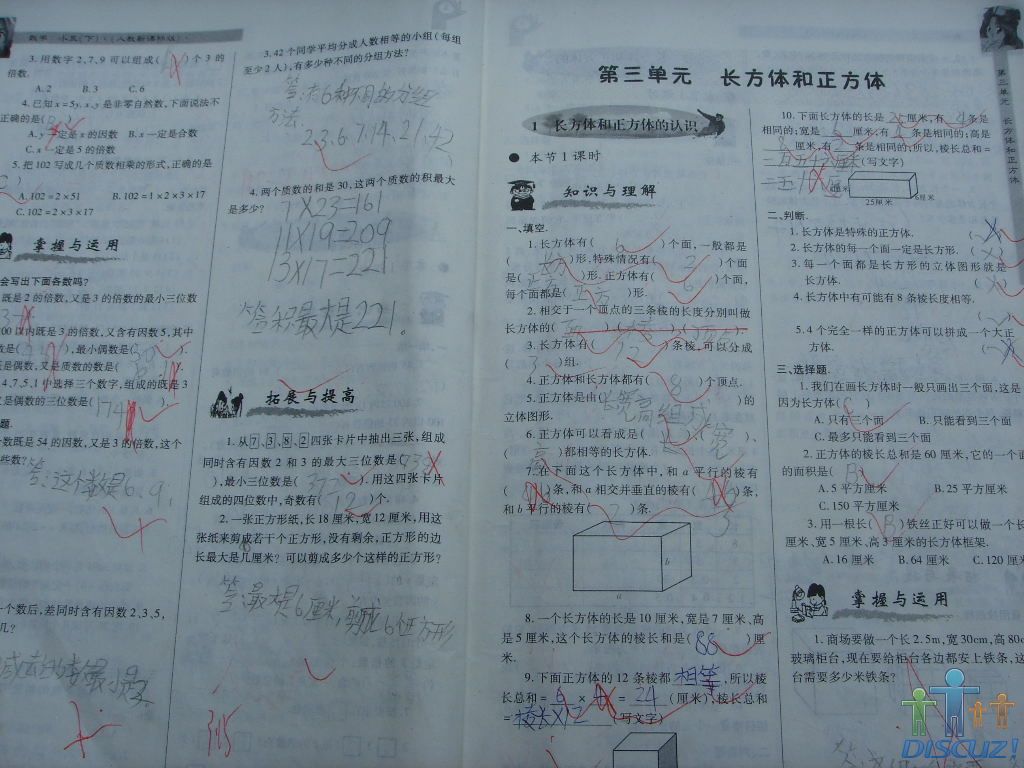 数学·小五(下)·(人教新课标版)·
3.用数字2,7,9可以组成( )个3的
倍数.
A.2 B.3 C.6
4.已知x=5y,x、y是非零自然数,下面说法不
正确的是( )
A.y一定是x的因数 B.x一定是合数
C.x一定是5的倍数
5.把102写成几个质数相乘的形式,正确的是
A.102=2×51 B.102=1×2×3×17
C.102=2×3×17
掌握与运用
会写出下面各数吗?
既是2的倍数,又是3的倍数的最小三位数
00以内既是3的倍数,又含有因数5,其中
数是( ),最小偶数是(30).
既是偶数,又是质数的数是( ).
4,7,5,1中选择三个数字,组成的既是3
又是偶数的三位数是(174).
题.
个数既是54的因数,又是3的倍数,这个
些数?
答:这个数是6、9,
一个数后,差同时含有因数2,3,5,
几?
3.42个同学平均分成人数相等的小组(每组
至少2人),有多少种不同的分组方法?
答:共6种不同的分组
方法.
2,3,6,7,14,21,42
4.两个质数的和是30,这两个质数的积最大
是多少?
7×23=161
11×19=209
13×17=221
答:积最大是221。
拓展与提高
1.从7、3、8、2四张卡片中抽出三张,组成
同时含有因数2和3的最大三位数是(
),最小三位数是(372).用这四张卡片
组成的四位数中,奇数有(12)个.
2.一张正方形纸,长18厘米,宽12厘米,用这
张纸来剪成若干个正方形,没有剩余,正方形的边
长最大是几厘米?可以剪成多少个这样的正方形?
答:最大是6厘米,剪成6个正方形
第三单元 长方体和正方体
1 长方体和正方体的认识
本节1课时
知识与理解
一、填空.
1.长方体有(6)个面,一般都是
(长方)形,特殊情况有(2)个面
是(正方)形.正方体有(6)个面,
每个面都是(正方)形.
2.相交于一个顶点的三条棱的长度分别叫做
长方体的( )、( )、( ).
3.长方体有(12)条棱,可以分成
(3)组.
4.正方体和长方体都有(8)个顶点.
5.正方体是由(长宽高组成)的
立体图形.
6.正方体可以看成是(长)、(宽)、
(高)都相等的长方体.
7.在下面这个长方体中,和a平行的棱有
( )条,和a相交并垂直的棱有( )条,
和b平行的棱有( )条.
3
b
a
8.一个长方体的长是10厘米,宽是7厘米,高
是5厘米,这个长方体的棱长和是(88)厘
米.
9.下面正方体的12条棱都相等,所以棱
长总和=6×4=24(厘米),棱长总和
=棱长×12(写文字)
10.下面长方体的长是25厘米,有4条是
相同的;宽是 厘米,有 条是相同的;高是
8厘米,有 条是相同的;所以,棱长总和=
(写文字)
25厘米
6厘米
二、判断.
1.长方体是特殊的正方体. (×)
2.长方体的每一个面一定是长方形. (×)
3.每一个面都是长方形的立体图形就是
长方体. (×)
4.长方体中有可能有8条棱长度相等.
5.4个完全一样的正方体可以拼成一个大正
方体. (×)
三、选择题.
1.我们在画长方体时一般只画出三个面,这是
因为长方体( )
A.只有三个面 B.只能看到三个面
C.最多只能看到三个面
2.正方体的棱长总和是60厘米,它的一个面
的面积是(B)
A.5平方厘米 B.25平方厘米
C.150平方厘米
3.用一根长(B)铁丝正好可以做一个长
厘米、宽5厘米、高3厘米的长方体框架.
A.16厘米 B.64厘米 C.120厘米
掌握与运用
1.商场要做一个长2.5m,宽30cm,高80c
玻璃柜台,现在要给柜台各边都安上铁条,这
台需要多少米铁条?
第三单元 长方体和正方体
3.15
DISCUZ!